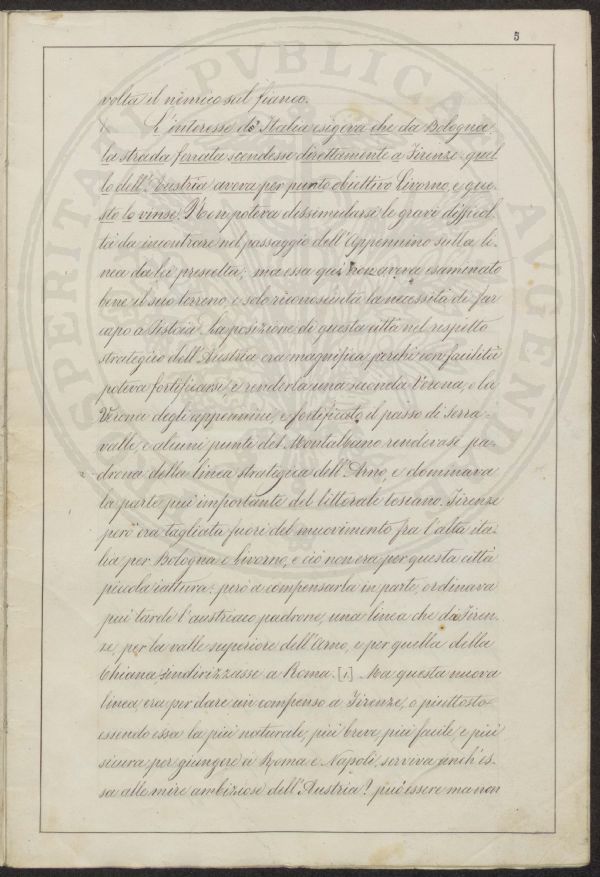 5
volta il nimico sul fianco.
L'interesse d'Italia esigeva che da Bologna
la strada ferrata scendesse direttamente a Firenze quel
lo dell'Austria aveva per punto obiettivo Livorno, e que-
sto lo vinse. Non poteva dissimularsi le gravi difficol
tà da incontrare nel passaggio dell'Appennino sulla li-
nea da lei prescelta; ma essa qui non aveva esaminato
bene il suo terreno e solo riconosciuta la necessità di far
capo a Pistoia la posizione di questa città nel rispetto
strategico dell'Austria era magnifica perchè con facilità
poteva fortificarsi, e renderla una seconda Verona, o la
Verona degli appennini, e fortificato il passo di Serra-
valle, e alcuni punti del Montalbano rendevasi pa-
drona della linea strategica dell'Arno, e dominava
la parte più importante del littorale toscano. Firenze
però era tagliata fuori del muovimento fra l'alta ita-
lia per Bologna e Livorno, e ciò non era per questa città
piccola iattura: però a compensarla in parte, ordinava
più tarde l'austriaco padrone, una linea che da Firen-
ze, per la valle superiore dell'Arno, e per quella della
Chiana, s'indirizzasse a Roma. [1] Ma questa nuova
linea era per dare un compenso a Firenze, o piuttosto
essendo essa la più naturale, più breve, più facile e più
sicura per giungere a Roma e Napoli, serviva anch'es-
sa alle mire ambiziose dell'Austria? può essere ma non
PERITALI PVBLICA AVGEND